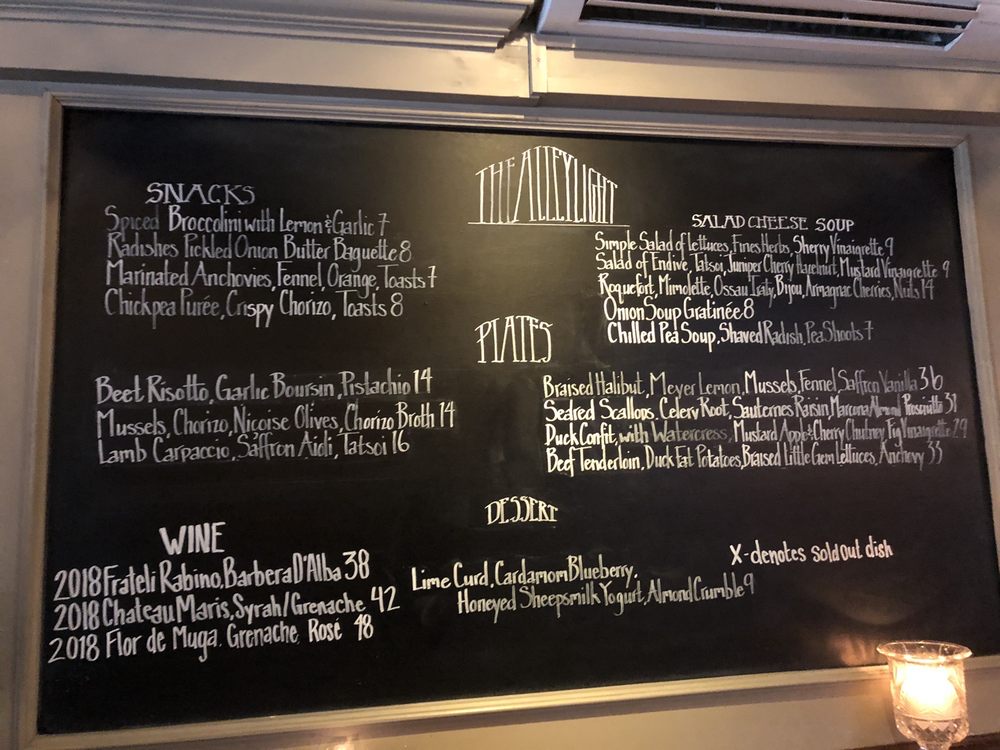 THE ALLEYLIGHT
SNACKS
Spiced Broccolini with Lemon & Garlic 7
Radishes Pickled Onion Butter Baguette 8
Marinated Anchovies, Fennel, Orange, Toasts 7
Chickpea Purée, Crispy Chorizo, Toasts 8
SALAD CHEESE SOUP
Simple Salad of Lettuces, Fines Herbs, Sherry Vinaigrette 9
Salad of Endive, Tatsoi, Juniper Cherry Hazelnut, Mustard Vinaigrette 9
Roquefort, Mimolette, Ossau Iraty, Bijou, Armagnac Cherries, Nuts 14
Onion Soup Gratinée 8
Chilled Pea Soup, Shaved Radish, Pea Shoots 7
PLATES
Beet Risotto, Garlic Boursin, Pistachio 14
Mussels, Chorizo, Niçoise Olives, Chorizo Broth 14
Lamb Carpaccio, Saffron Aioli, Tatsoi 16
Braised Halibut, Meyer Lemon, Mussels, Fennel, Saffron Vanilla 36
Seared Scallops, Celery Root, Sauternes Raisin, Marcona Almond Prosciutto 31
Duck Confit, with Watercress, Mustard Apple & Cherry Chutney, Fig Vinaigrette 29
Beef Tenderloin, Duck Fat Potatoes, Braised Little Gem Lettuces, Anchovy 33
DESSERT
Lime Curd, Cardamom Blueberry,
Honeyed Sheepsmilk Yogurt, Almond Crumble 9
WINE
2018 Frateli Rabino, Barbera D'Alba 38
2018 Chateau Maris, Syrah/Grenache 42
2018 Flor de Muga, Grenache, Rosé 48
X-denotes sold out dish